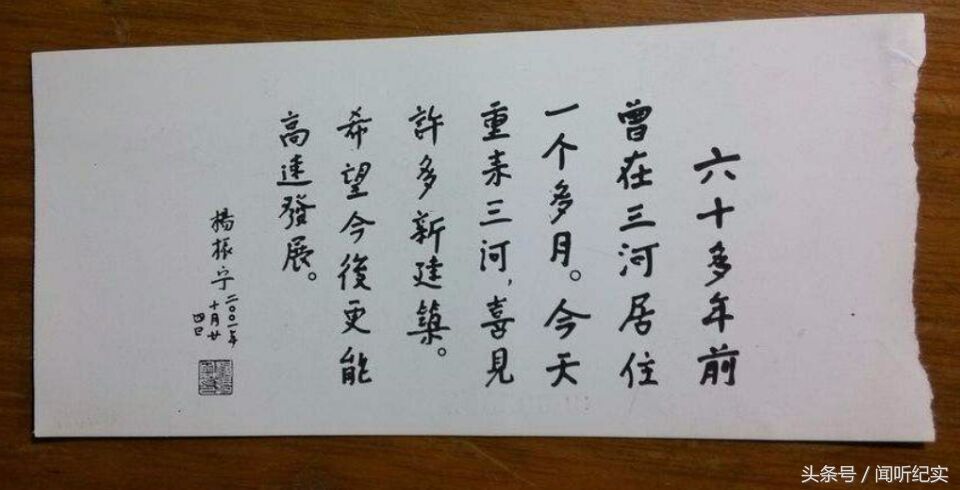 六十多年前
曾在三河居住
一个多月。今天
重来三河，喜見
許多新建築。
希望今後更能
高速發展。
楊振宁
二〇〇一年
十月廿
四日
头条号 / 闻听纪实